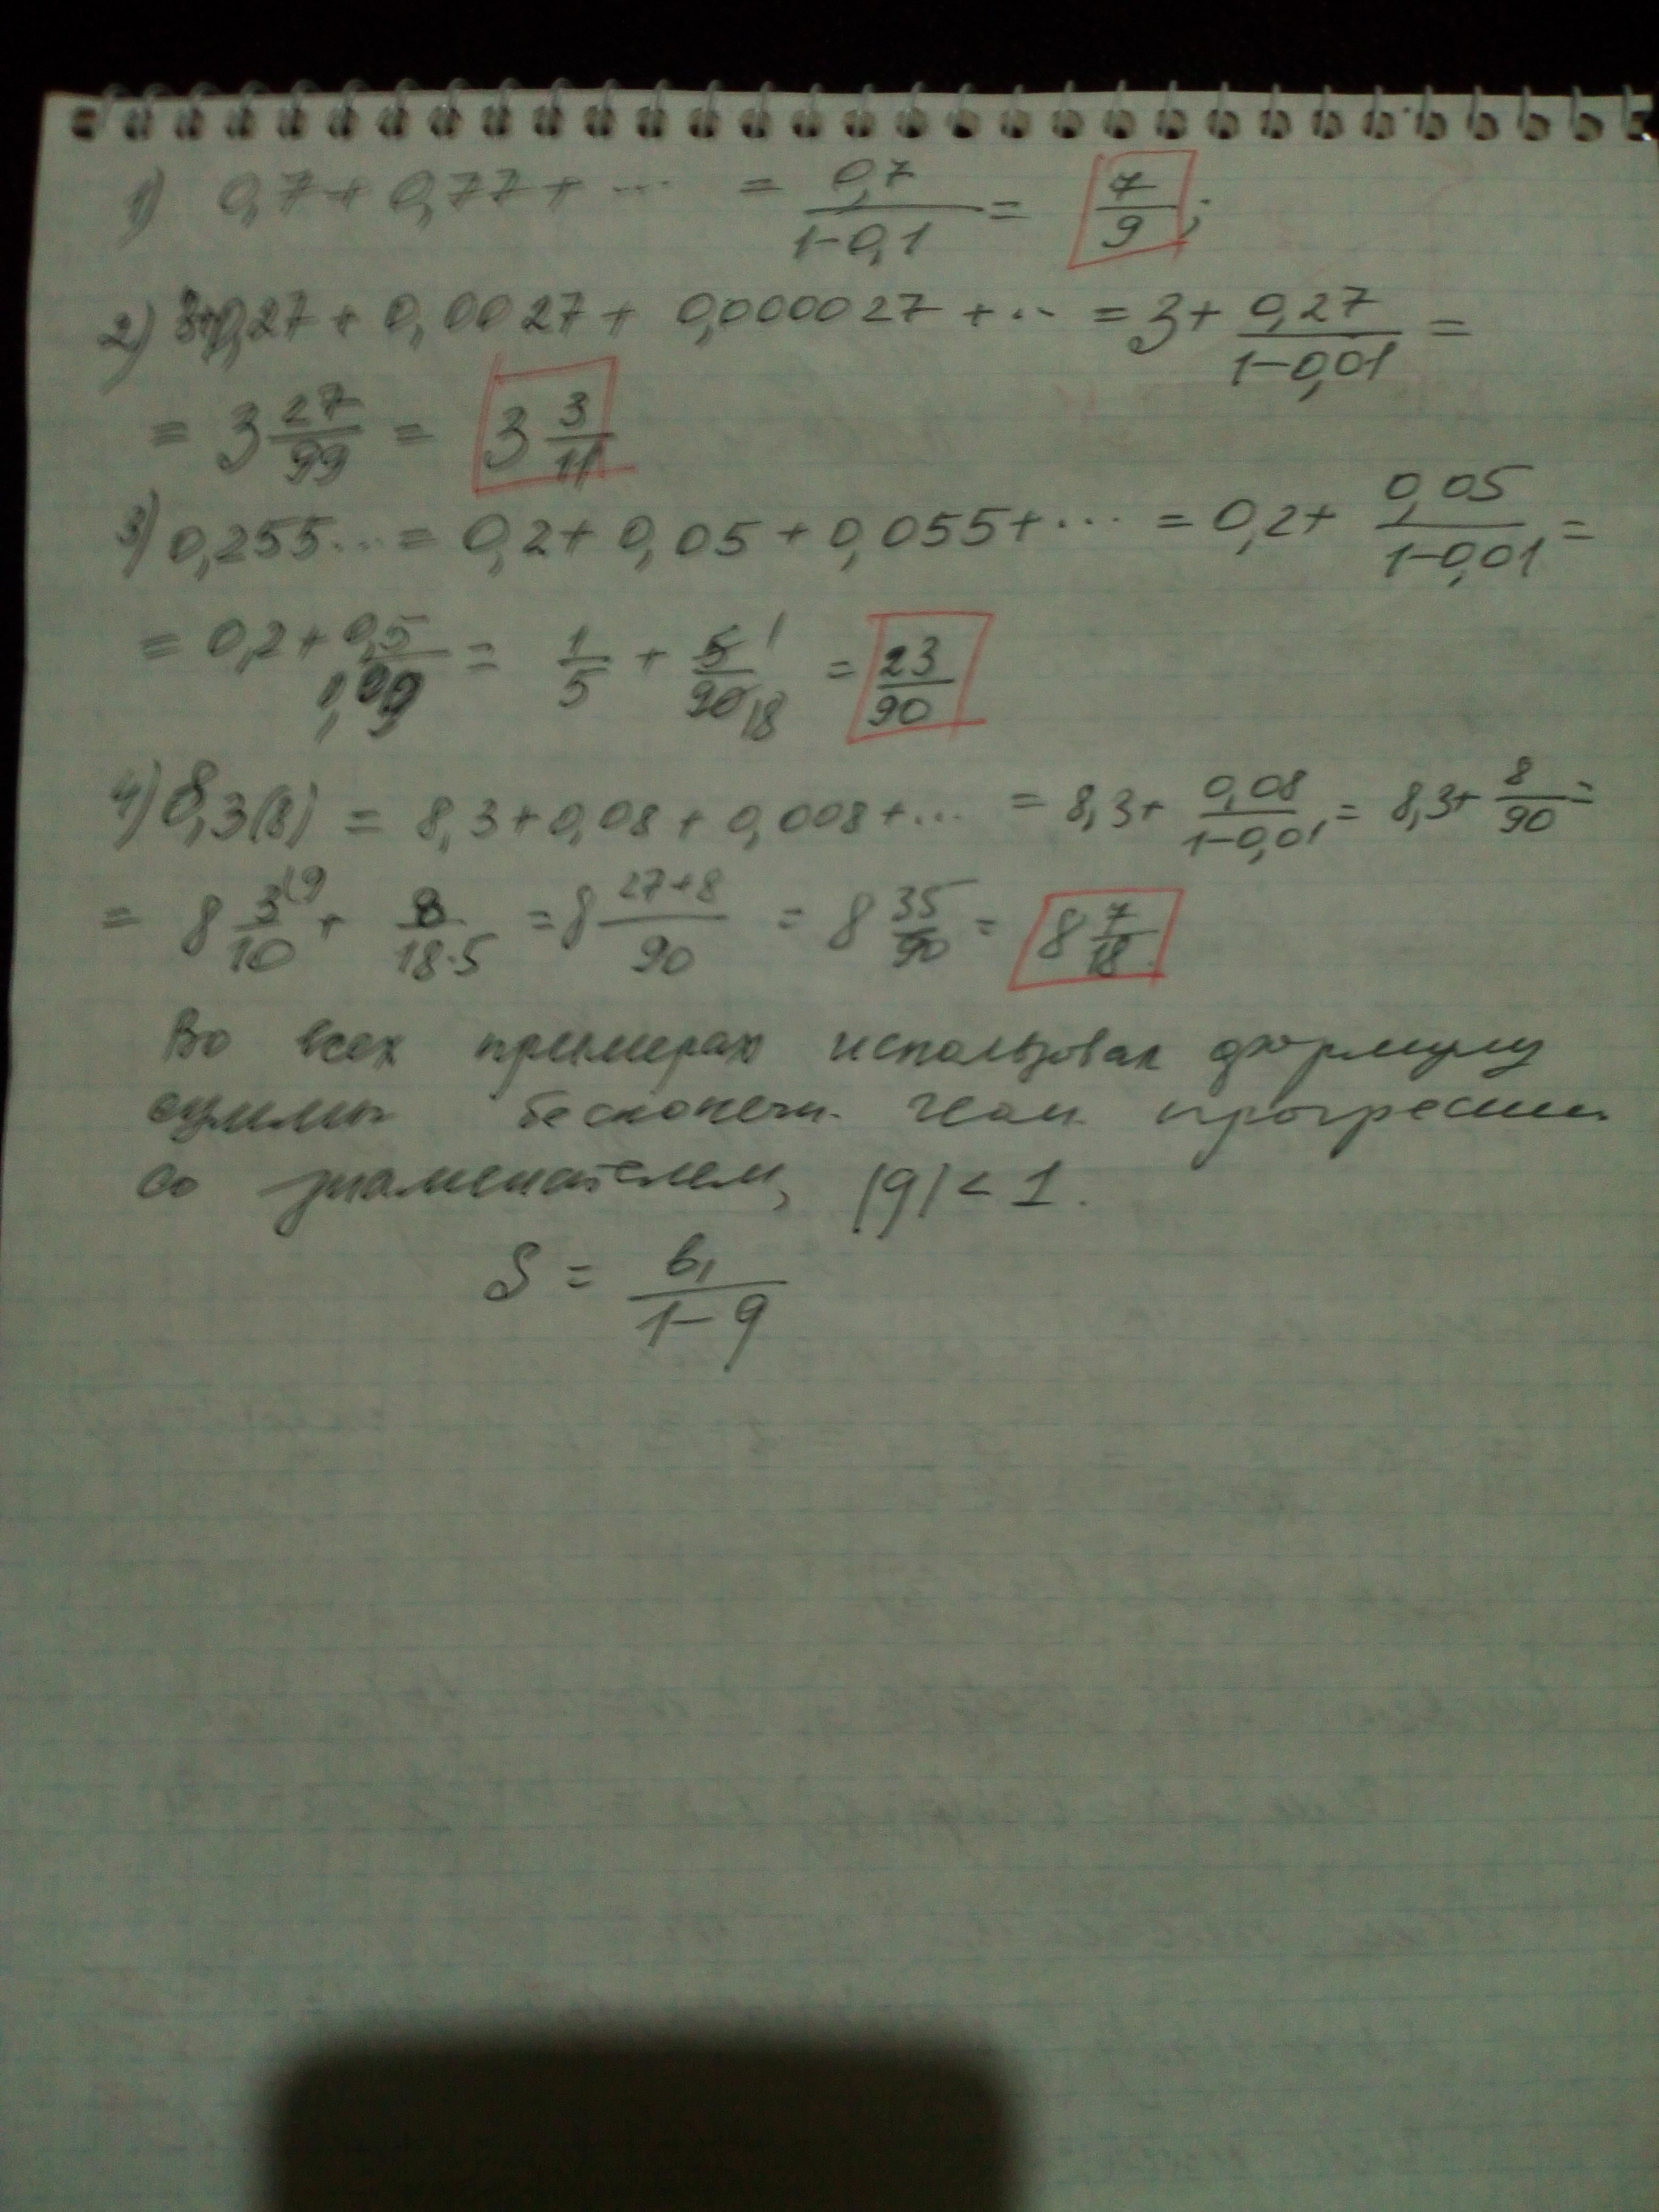 1) 0,7 + 0,77 + ... = 0,7/(1-0,1) = 7/9;
2) 3+0,27 + 0,0027 + 0,000027 + ... = 3 + 0,27/(1-0,01) =
= 3 27/99 = 3 3/11
3) 0,255... = 0,2 + 0,05 + 0,055 + ... = 0,2 + 0,05/(1-0,01) =
= 0,2 + 0,5/1,99 = 1/5 + 5/90 1 18 = 23/90
4) 8,3(8) = 8,3 + 0,08 + 0,008 + ... = 8,3 + 0,08/(1-0,01) = 8,3 + 8/90 =
= 8 3/10 (9 + 8/18·5 = 8 (27+8)/90 = 8 35/90 = 8 7/18
Во всех примерах использовал формулу
суммы бесконечн. геом. прогрессии
со знаменателем, |q| < 1.
S = b₁/(1-q)